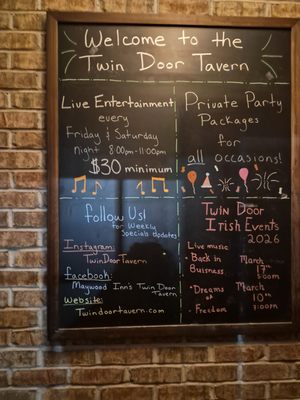 Welcome to the
Twin Door Tavern
Live Entertainment
every
Friday & Saturday
night 8:00pm-11:00pm
$30 minimum
Private Party
Packages
for
all occasions!
follow Us!
for Weekly
Specials Updates
Instagram:
TwinDoorTavern
facebook:
Maywood Inn's Twin Door
Tavern
Website:
Twindoortavern.com
Twin Door
Irish Events
2026
Live music
• Back in
Buisness
March
17th
• Dreams
of
Freedom
March
10th
7:00pm